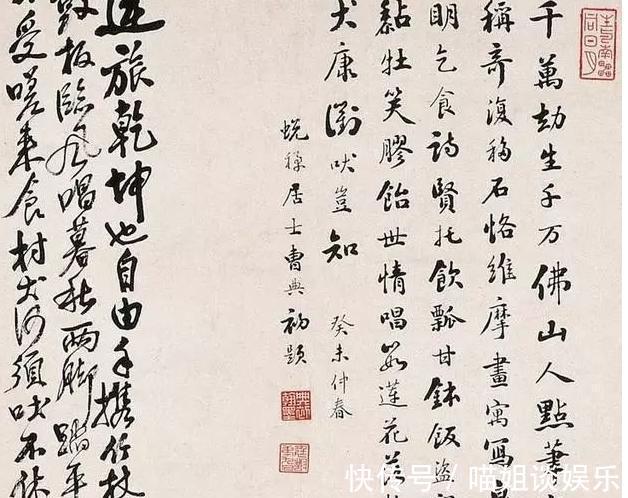 千萬劫生千万佛山人點筆
稱奇復移石恪維摩畫寓寫
明乞食詩賢托飲瓢甘鉢飯盜
黏牡笑膠飴世情唱蓮花
犬康衢吠豈知
癸未仲春
蛻禪居士曹典初題
逆旅乾坤也自由手携竹杖
鼓板臨風唱暮秋兩腳踏平
不受嗟来食村犬何須吠不休
快传号 / 喵姐谈娱乐